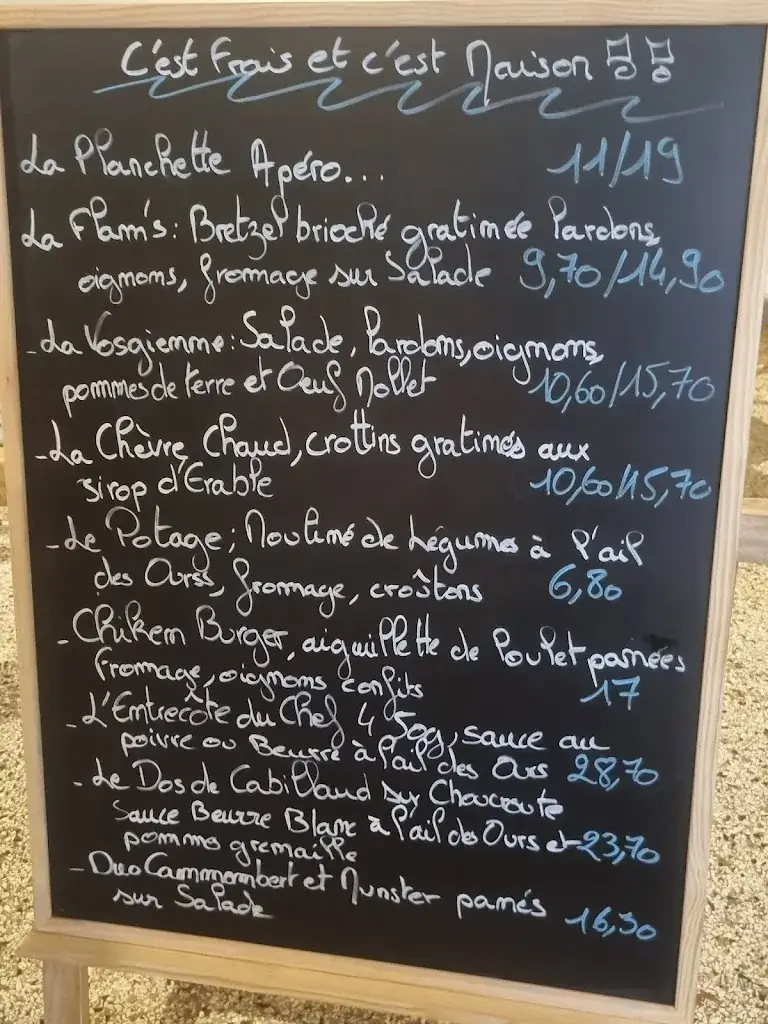 C'est Frais et c'est Maison !!
La Planchette Apéro... 11/19
La Flam's: Bretzel brioché gratinée lardons,
oignons, fromage sur Salade 9,70/14,90
-La Vosgienne: Salade, lardons, oignons,
pommes de terre et Oeuf Mollet 10,60/15,70
-La Chèvre Chaud, crottins gratinés aux
sirop d'Erable 10,60/15,70
-Le Potage; Mouliné de Légumes à l'ail
des Ours, fromage, croûtons 6,80
-Chiken Burger, aiguillette de Poulet panées
fromage, oignons confits 17
-L'Entrecôte du Chef 450g, sauce au
poivre ou Beurre à l'ail des Ours 28,70
-Le Dos de Cabillaud sur Choucroute
Sauce Beurre Blanc à l'ail des Ours et 23,70
pomme grenaille
-Duo Cammembert et Munster panés
sur Salade 16,50